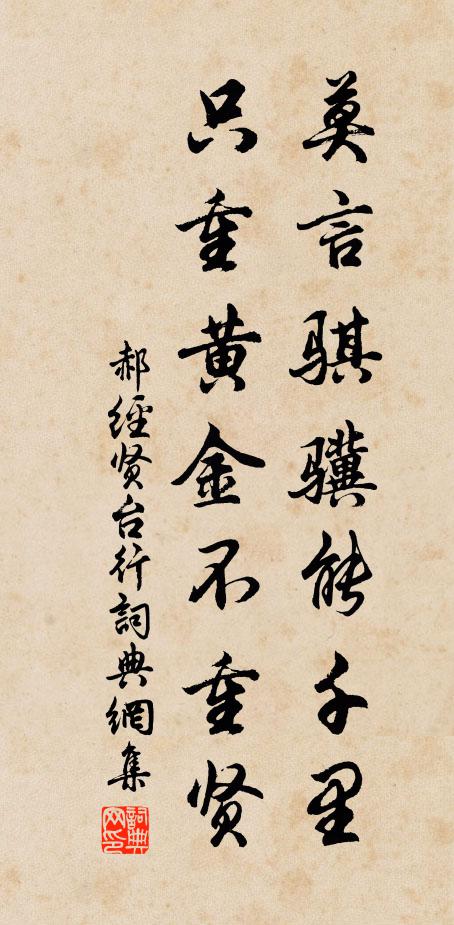 莫言骐骥能千里
只重黄金不重贤
郝經贤台行詞典網集
詞典网印